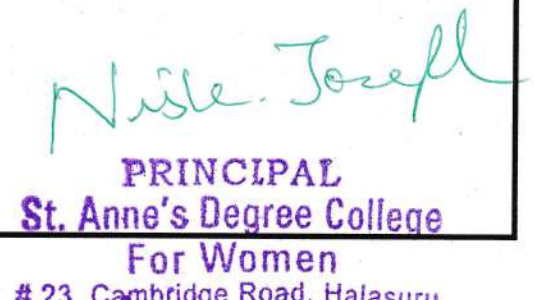 Nisha. Joseph
PRINCIPAL
St. Anne's Degree College
For Women
# 23, Cambridge Road, Halasuru